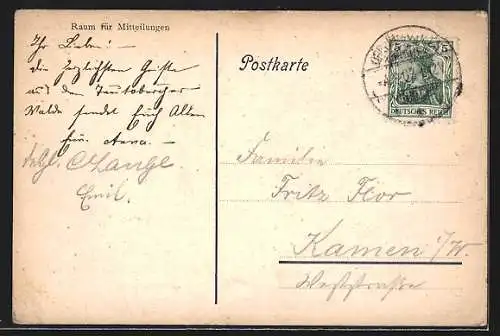 Raum für Mitteilungen
Ihr Lieben! —
die herzlichsten Grüße
aus dem Teutoburger
Walde sendet Euch Allen
Eure Anna. —
Emil.
Postkarte
5 5
DEUTSCHES REICH
Familie
Fritz Flor
Kamen i/W.
Weststraße